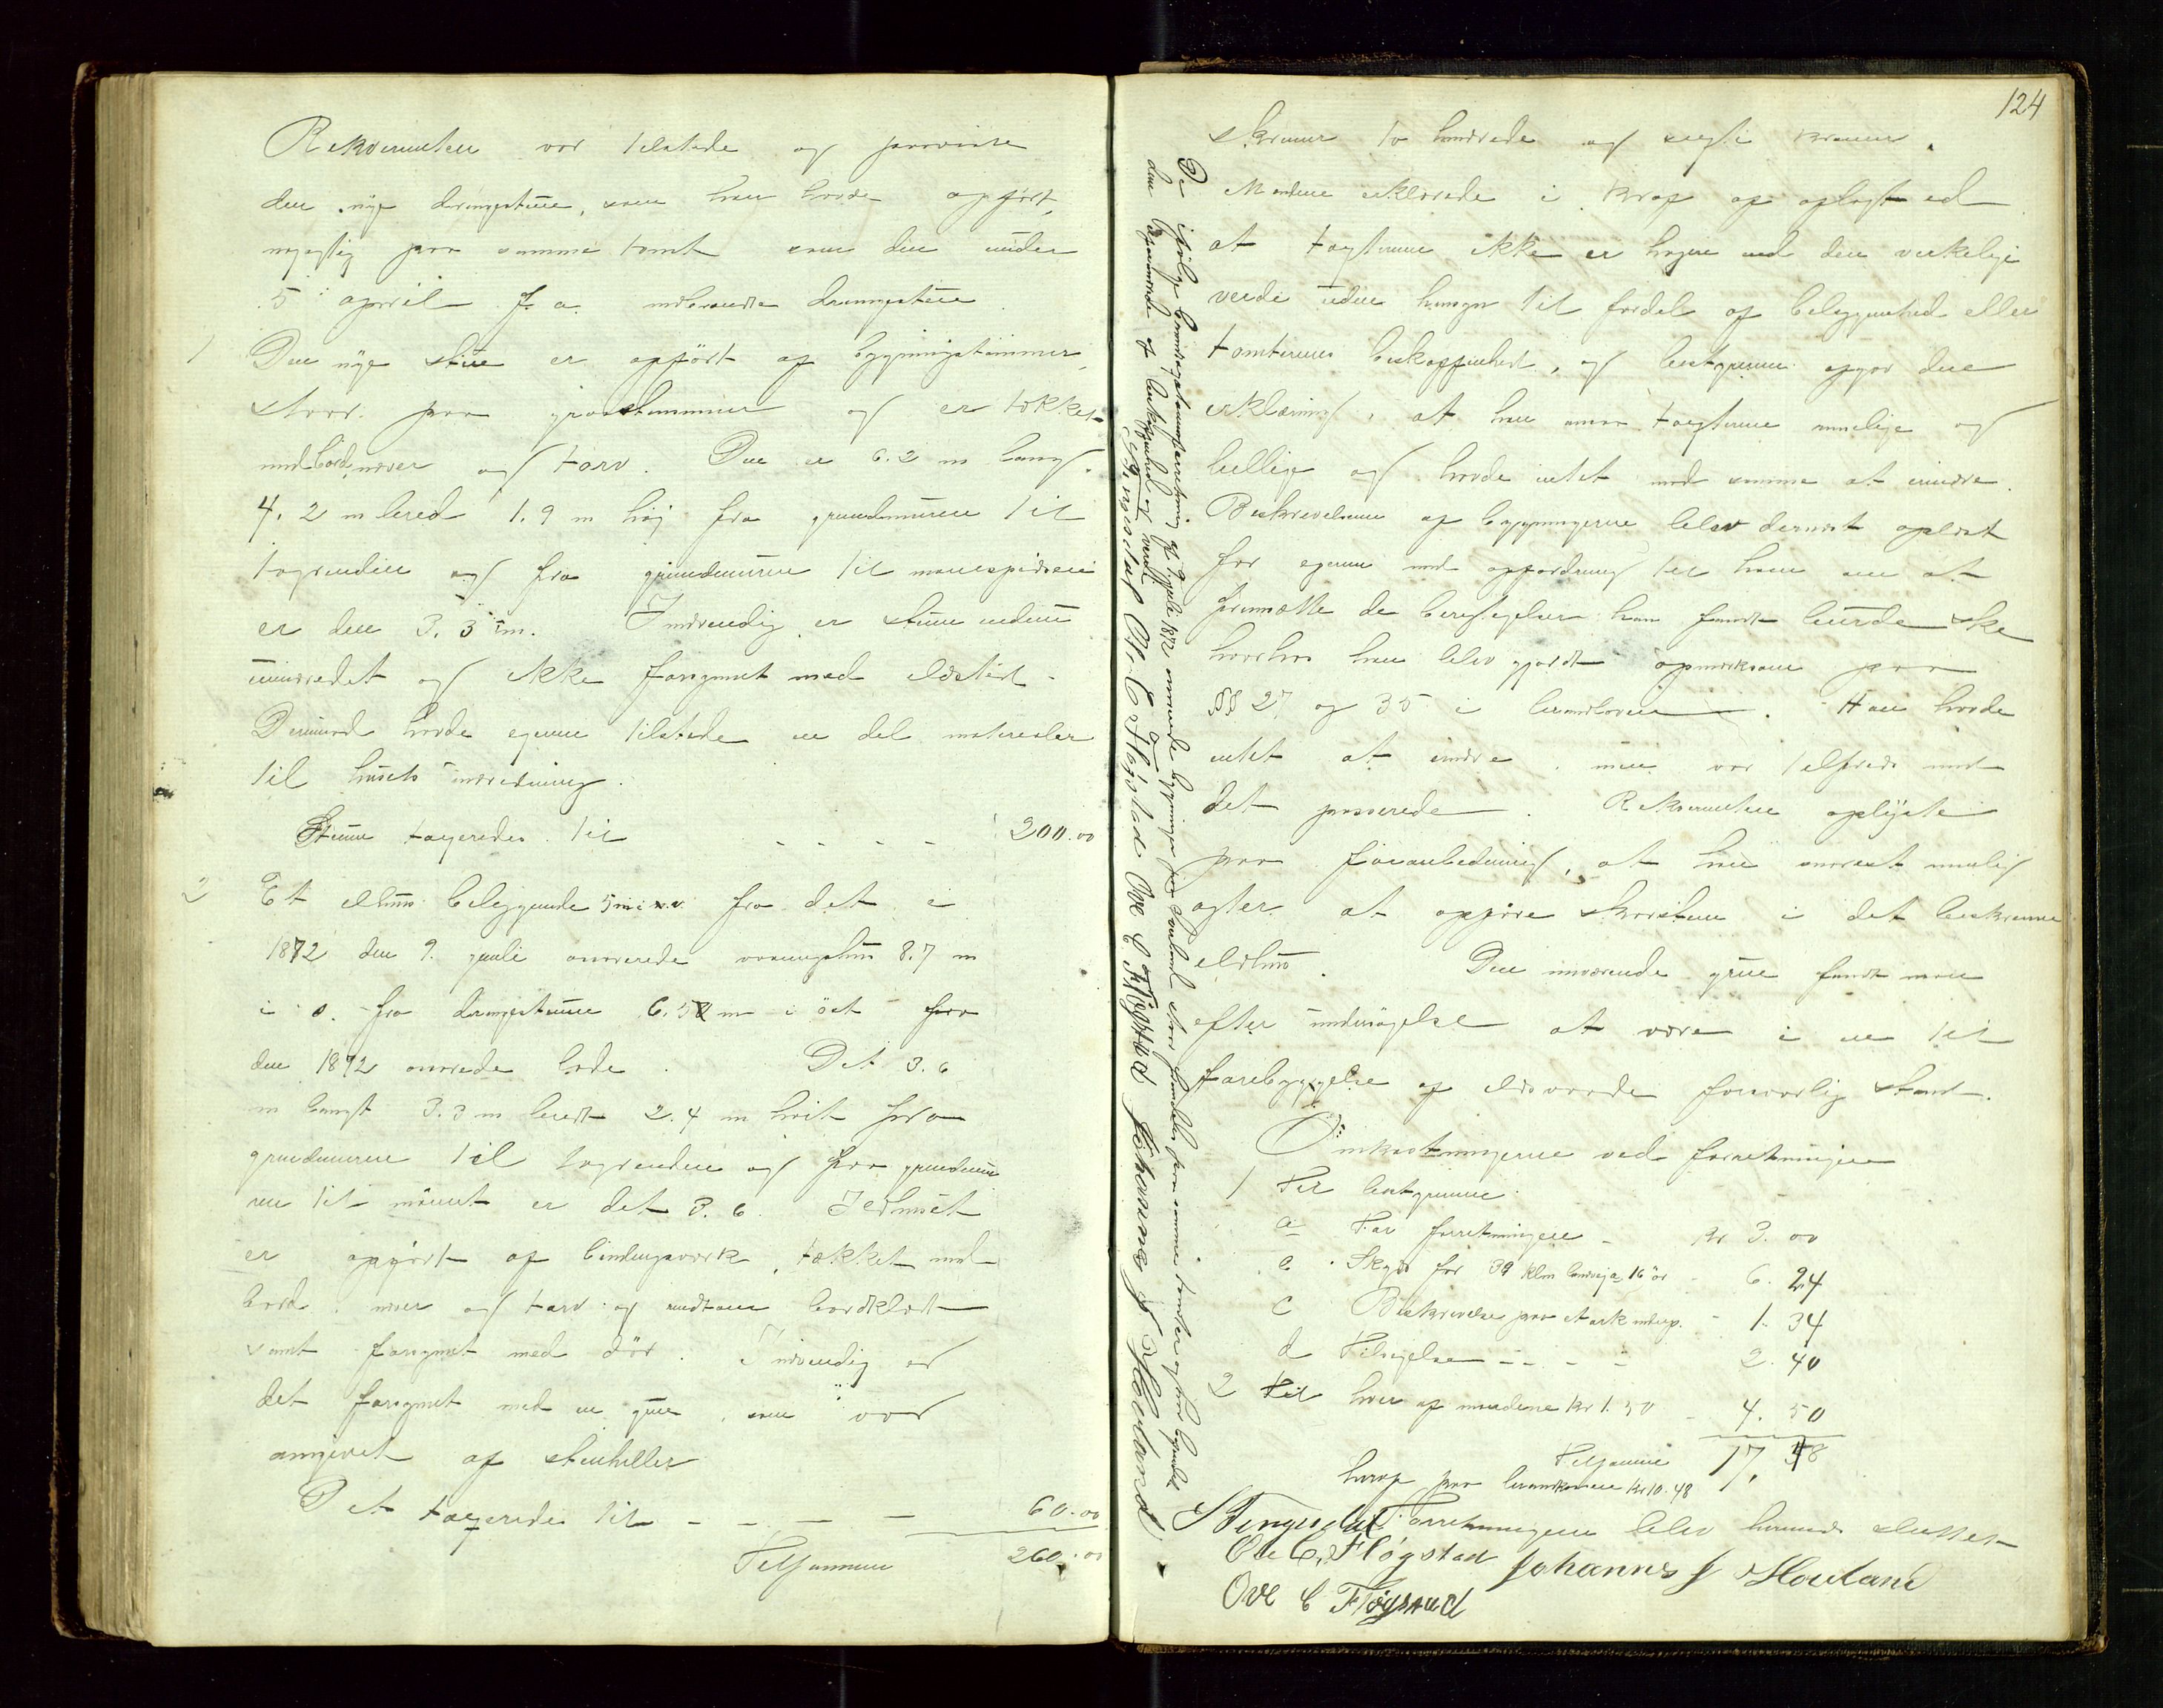 Rekvirenten var tilstede og paaviste
den nye drengestue, som han havde opført,
nøyagtig paa samme tomt som den under
5 april f. a. nedbrændte drengestue
1 Den nye stue er opført af bygningstømmer,
staar paa graastensmur og er tækket
med bord, næver og torv. Den er 6.2 m lang,
4.2 m bred 1.9 m høj fra grundmuren til
tagrenden og fra grundmuren til mønespidsen
er den 3.3 m. Indvendig er stuen endnu
uindredet og ikke forsynet med ildsted.
Derimod havde egeren tilstede en del materialer
til husets indredning.
Stuen taxeredes til - - - - 200.00
2 Et eldhus beliggende 5 m i n.v. fra det i
1872 den 9. juli assurerede vaaningshus 8.7 m
i s. fra drengestuen 6.5 m i øst fra
den 1872 assurerede lade. Det 3.6
m langt 3.3 m bredt 2.4 m høit fra
grundmuren til tagrenden og fra grundmu
ren til mønet er det 3.6. Ildhuset
er opført af bindingsværk, tækket med
bord, næver og torv og rundtom bordklædt
samt forsynet med dør. Indvendig er
det forsynet med en grue, som var
omgivet af stenheller
Det taxeredes til - - - - 60.00
Tilsammen 260.00
124
skriver to hundrede og sexti kroner.
Mændene erklærede i kraft af aflagt ed
at taxterne ikke er høyere end den verkelige
verdi uden hensyn til fordel af beliggenhed eller
tomternes beskaffenhed, og bestyreren afgav den
erklæring, at han ansaa taxterne rimelige og
billige og havde intet mod samme at erindre.
Beskrivelsen af bygningerne blev dernæst oplæst
for egeren med opfordring til ham om at
fremsætte de berigtigelser han fandt burde ske
hvorhos han blev gjordt opmærksom paa
§§ 27 og 35 i brandloven. Han havde
intet at erindre, men var tilfreds med
det passerede. Rekvirenten oplyste
paa foranledning, at han snarest mulig
agter at opføre skorsten i det beskrevne
eldhus. Den nuværende grue fandt man
efter undersøgelse at være i en til
forebyggelse af ildsvaade forsvarlig stand.
Omkostningerne ved forretningen
1 Til bestyreren
a For forretningen - kr 3.00
b Skyds for 39 klm landvej a 16 ør - 6.24
c Beskrivelse paa et ark indesp. - 1.34
d Tilsigelse - - - - 2.40
2 Til hver af mændene kr 1.50 - 4.50
Tilsammen 17,48
heraf paa brandkassen kr 10.48
Forretningen blev hermed sluttet
Ole C. Fløgstad Johannes J Hovland
Ove C Fløgstad
De ifølge brandtaxationsforretning af 9 juli 1872 assurerede bygninger paa
Ole C. Fløgstad Ove C. Fløgstad Johannes J Hovland